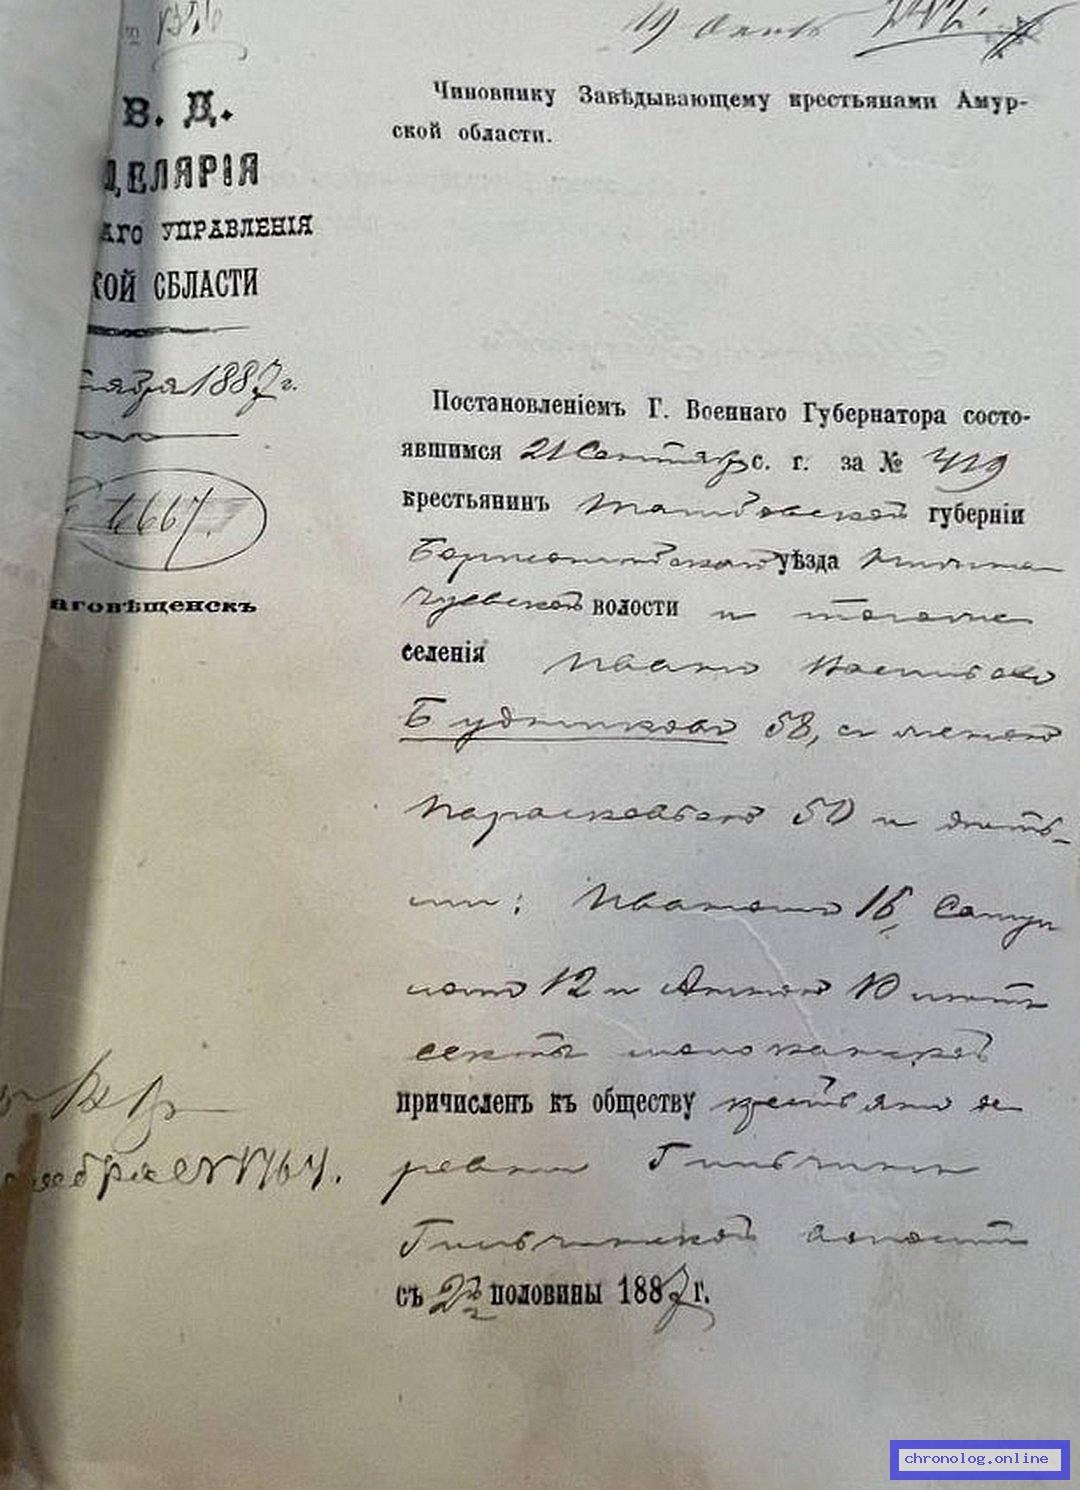 В. Д.
ЦЕЛЯРІЯ
АГО УПРАВЛЕНІЯ
КОЙ ОБЛАСТИ
тября 1887 г.
6667.
аговѣщенскъ
19 242.
Чиновнику Завѣдывающему крестьянами Амур-
ской области.
Постановленіемъ Г. Военнаго Губернатора состо-
явшимся 21 Сентября с. г. за № 419
крестьянинъ Тамбовской губерніи
Борисоглѣбскаго уѣзда
волости и того же
селенія Иванъ Васильевъ
Будниковъ 58, съ женою
Парасковьею 50 и дѣть-
ми: Иваномъ 16,
12 и Анною 10 лѣтъ
секты молоканской
причисленъ къ обществу крестьянъ де
ревни Гильчинъ
Гильчинской волости
съ 2й половины 1887 г.
№ 1764.
chronolog.online